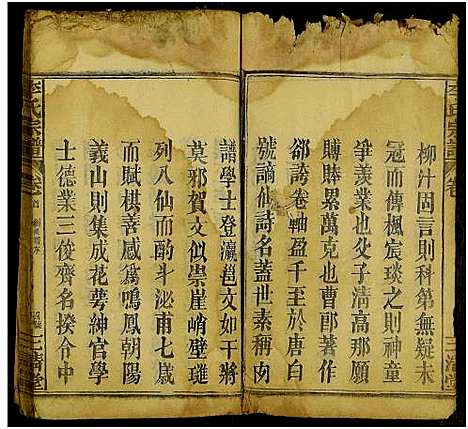 柳汁固言則科第無疑未
冠而傳楓宸琰之則神童
爭羨業也父子清高那願
賻賻累萬克也曹郎著作
郤謗卷軸盈千至於唐而
號謫仙詩名蓋世素稱
譜學士登瀛邕文如干將
莫邪賀文似崇崖峭壁璡
列八仙而酌斗泌甫七歲
而賦棋善感為鳴鳳朝陽
義山則集成花萼紳官學
士德業三俊齊名揆令中
李氏宗譜
卷
三清堂